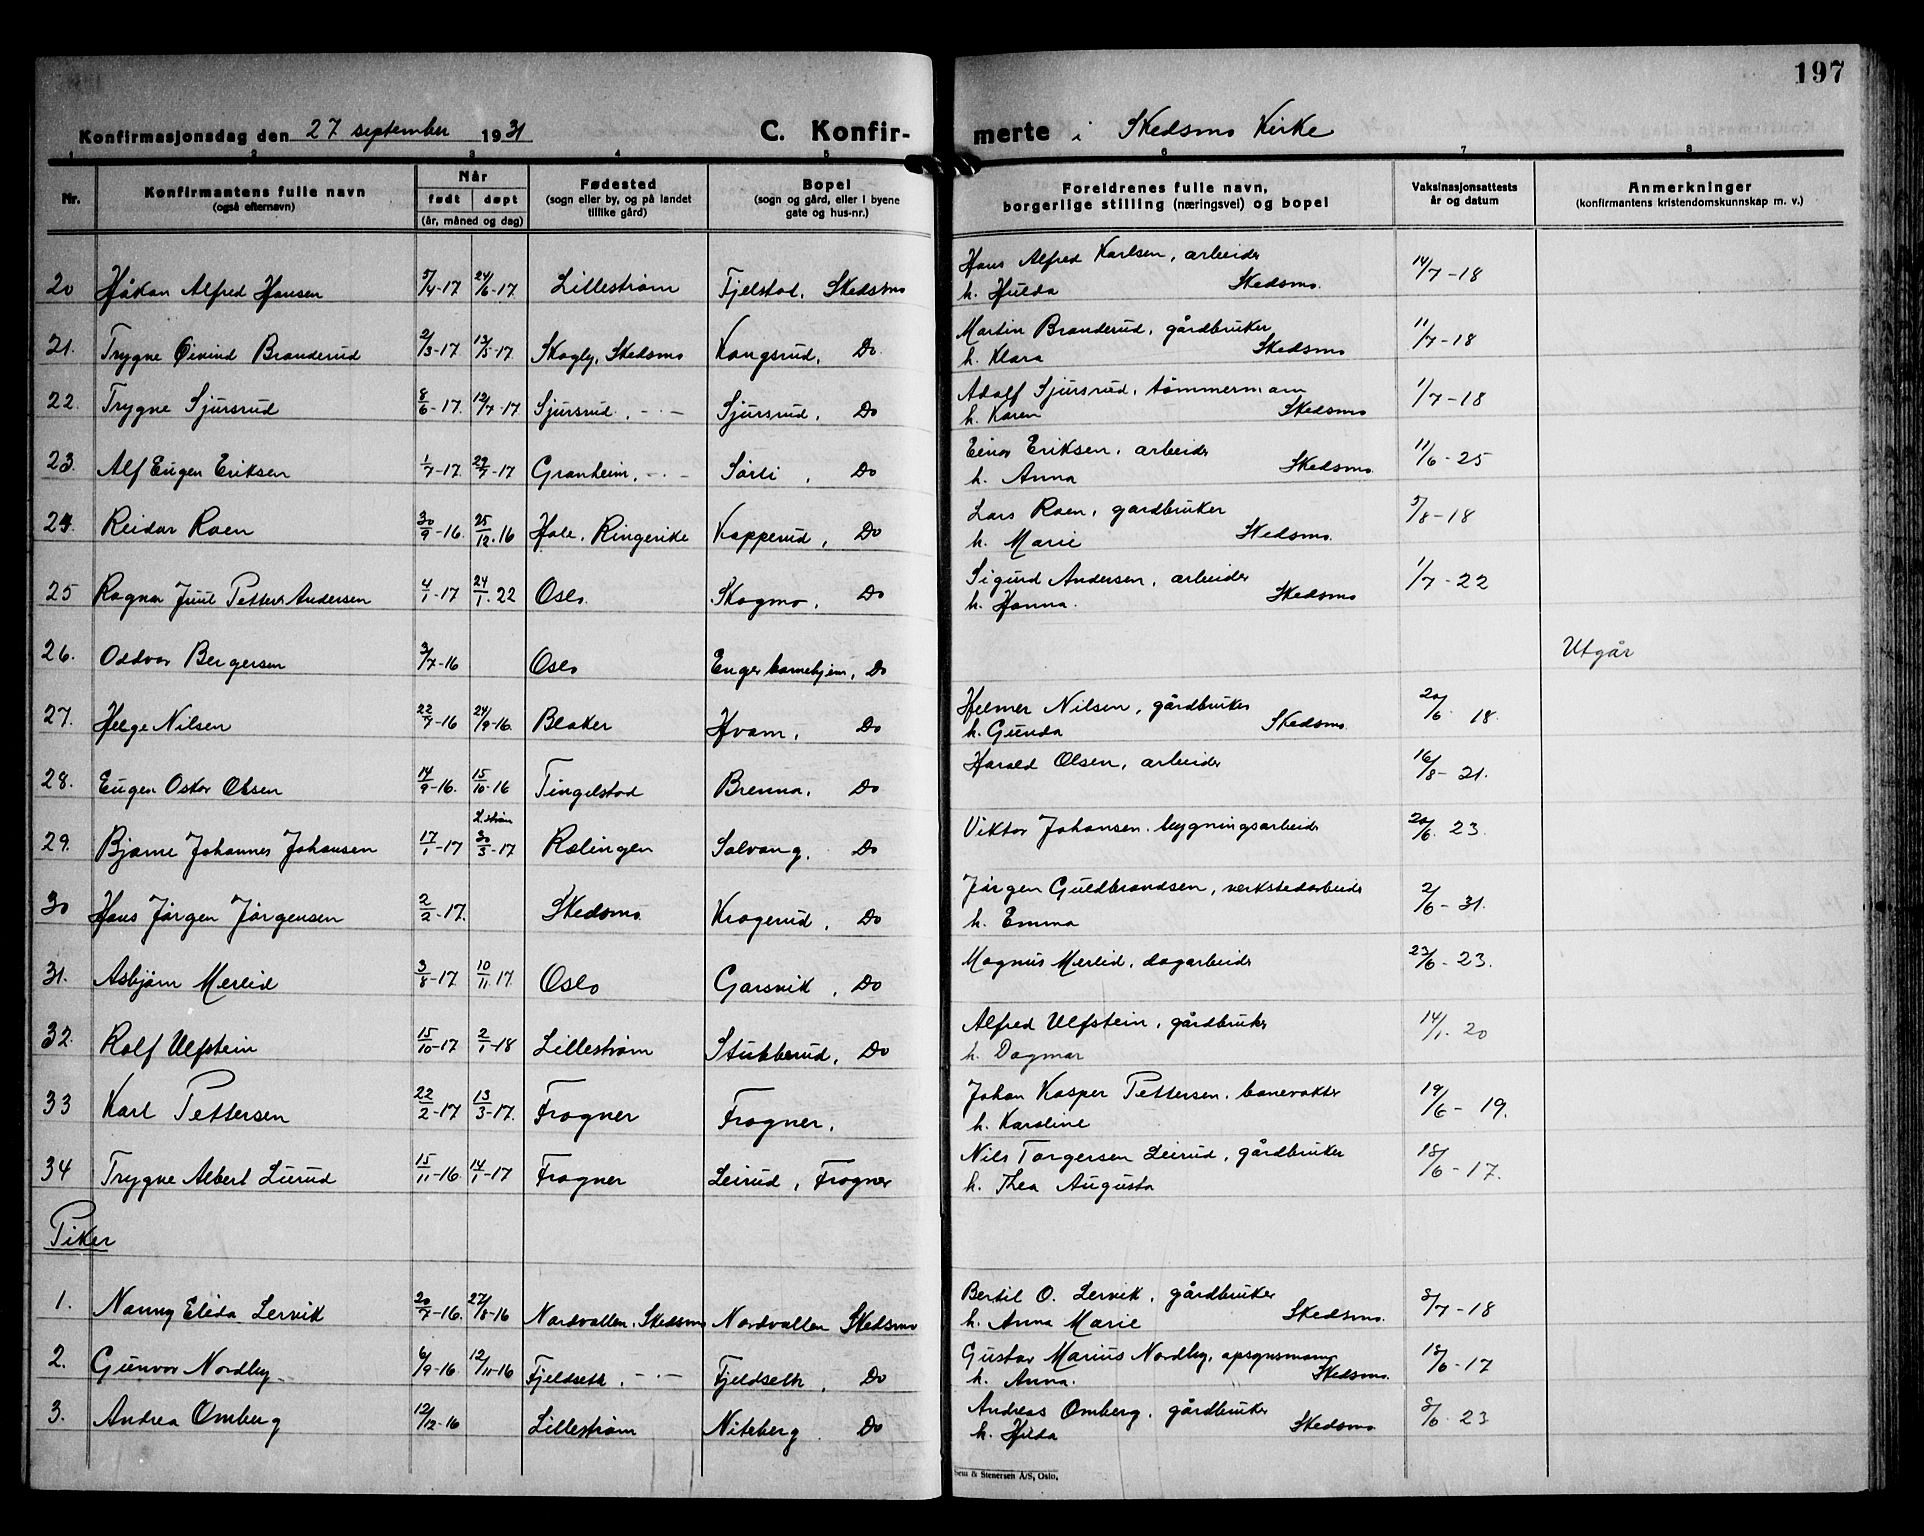 197
Konfirmasjonsdag den 27 september 1931 C. Konfir- merte i Skedsmo Kirke
1 2 3 4 5 6 7 8
Nr. Konfirmantens fulle navn (også efternavn) Når født døpt (år, måned og dag) Fødested (sogn eller by, og på landet tillike gård) Bopel (sogn og gård, eller i byene gate og hus-nr.) Foreldrenes fulle navn, borgerlige stilling (næringsvei) og bopel Vaksinasjonsattests år og datum Anmerkninger (konfirmantens kristendomskunnskap m. v.)
20 Håkon Alfred Hansen 5/4-17 24/6-17 Lillestrøm Fjelstad, Skedsmo Hans Alfred Karlsen, arbeider h. Hulda Skedsmo. 14/7-18
21. Trygve Øivind Branderud 2/3-17 13/5-17 Skogly, Skedsmo Kongsrud, Do Martin Branderud, gårdbruker h. Klara Skedsmo 11/7-18
22. Trygve Sjursrud 8/6-17. 12/7-17 Sjursrud, -·- Sjursrud, Do Adolf Sjursrud, tømmermann h. Karen Skedsmo 1/7-18
23. Alf Eugen Eriksen 1/7-17. 29/7-17 Granheim, -·- Sørli, Do Einar Eriksen, arbeider h. Anna Skedsmo. 11/6-25
24. Reidar Roen 30/9-16. 25/12-16 Hole, Ringerike Kopperud, Do Lars Roen, gårdbruker h. Marie Skedsmo. 5/8-18
25 Ragnar Juul Petters Andersen 4/1-17 24/1-22 Oslo. Skogmo, Do Sigurd Andersen, arbeider h. Hanna. Skedsmo 1/7-22
26. Oddvar Bergersen 3/7-16 Oslo Enger barnehjem, Do Utgår
27. Helge Nilsen 22/7-16 24/9-16. Blaker Hvam, Do Helmer Nilsen, gårdbruker h. Gunda Skedsmo. 20/6-18.
28. Eugen Oskar Olsen 14/9-16. 15/10-16 Tingelstad Brenna, Do Harald Olsen, arbeider 16/8-21.
29. Bjarne Johannes Johansen 17/1-17 L.strøm 30/3-17 Rælingen Solvang, Do Viktor Johansen, bygningsarbeider 20/6-23.
30 Hans Jørgen Jørgensen 2/2-17. Skedsmo. Krogerud, Do Jørgen Guldbrandsen, verkstedarbeider h. Emma 2/6-31.
31. Asbjørn Merlid 3/8-17 10/11-17. Oslo Garsvik, Do Magnus Merlid, dagarbeider 23/6-23.
32. Rolf Ulfstein 15/10-17 2/1-18 Lillestrøm Stubberud, Do Alfred Ulfstein, gårdbruker h. Dagmar 14/1-20
33 Karl Pettersen 22/2-17 13/3-17. Frogner Frogner. Johan Kasper Pettersen, banevokter h. Karoline 19/6-19.
34 Trygve Albert Lirud 15/11-16. 14/1-17 Frogner Leirud, Frogner Nils Torgersen Leirud, gårdbruker h. Thea Augusta 18/6-17.
Piker
1. Nanny Elida Lervik 20/7-16. 27/8-16 Nordvallen, Skedsmo Nordvallen Skedsmo Bertil O. Lervik, gårdbruker h. Anna Marie Skedsmo. 3/7-18
2. Gunvor Nordby 6/9-16 12/11-16 Fjeldseth, -·- Fjeldseth, Do Gustav Marius Nordby, opsynsmann h. Anna. Skedsmo. 18/6-17
3. Andrea Omberg 12/12-16 Lillestrøm Niteberg. Do Andreas Omberg, gårdbruker h. Hilda Skedsmo 3/6-23
Sem & Stenersen A/S, Oslo.